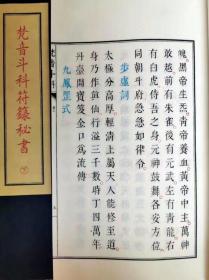 梵音斗科符籙秘書
下
魄黑帝生炁青帝養血黃帝中主萬神
敢越前有朱雀後有元武左有青龍右
有白虎侍吾之身元神鼓舞各安方位
同朝斗府急急如律令
步虛詞
太極分高厚輕清上屬天人能修至道
身乃作眞仙行溢三千數時丁四萬年
丹臺開寶笈金口爲流傳
九鳳罡式
梵音斗科